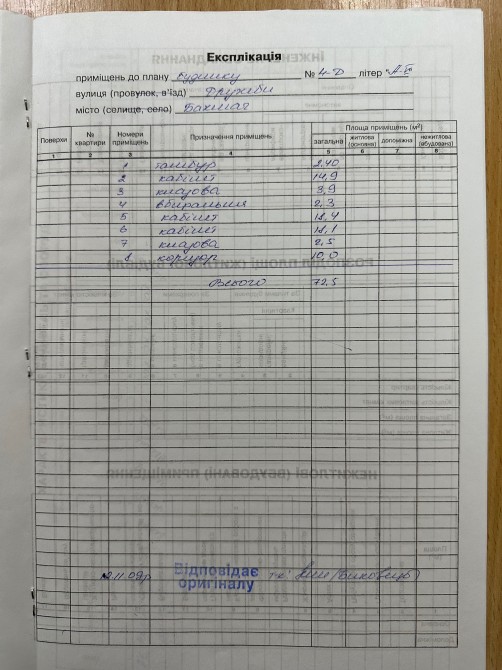 Експлікація
приміщень до плану будинку № 4-Д літер "А-I"
вулиця (провулок, в'їзд) Дружби
місто (селище, село) Бахмач
Поверхи № квартири Номери приміщень Призначення приміщень Площа приміщень (м²)
загальна житлова (основна) допоміжна нежитлова (вбудована)
1 2 3 4 5 6 7 8
1 тамбур 2,40
2 кабінет 14,9
3 кладова 3,9
4 вбиральня 2,3
5 кабінет 18,4
6 кабінет 18,1
7 кладова 2,5
8 коридор 10,0
Всього 72,5
Відповідає
оригіналу
12.11.09р